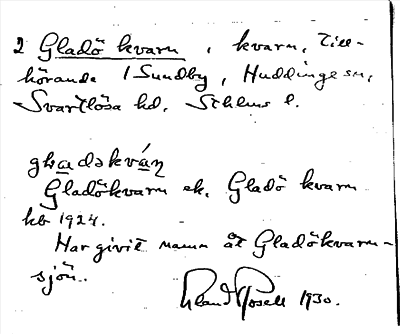 2 Gladö kvarn, kvarn, till-
hörande 1 Sundby, Huddinge sn,
Svartlösa hd. Sthlms l.
Gladökvarn ek. Gladö kvarn
kb 1924.
Har givit namn åt Gladökvarn-
sjön.
1930.